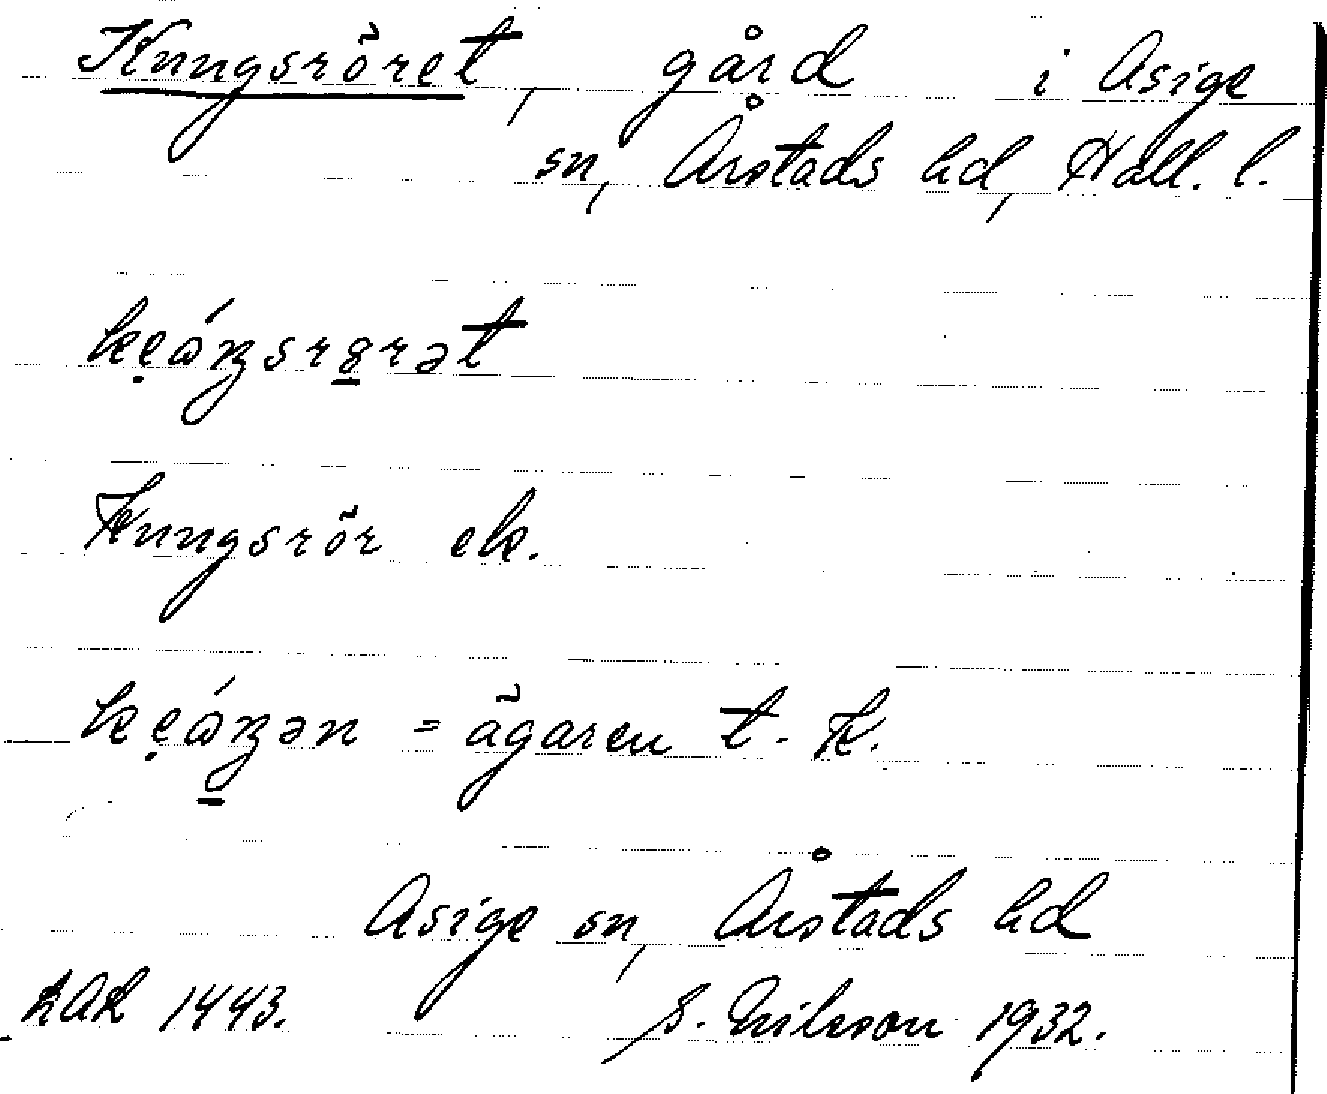 Kungsröret, gård i Asige
sn, Årstads hd, Hall. l.
kẹǿŋsrꝏ̱rət
Kungsrör ek.
kẹǿŋən = ägaren t. K.
Asige sn, Årstads hd
1443. S. Nilsson 1932.